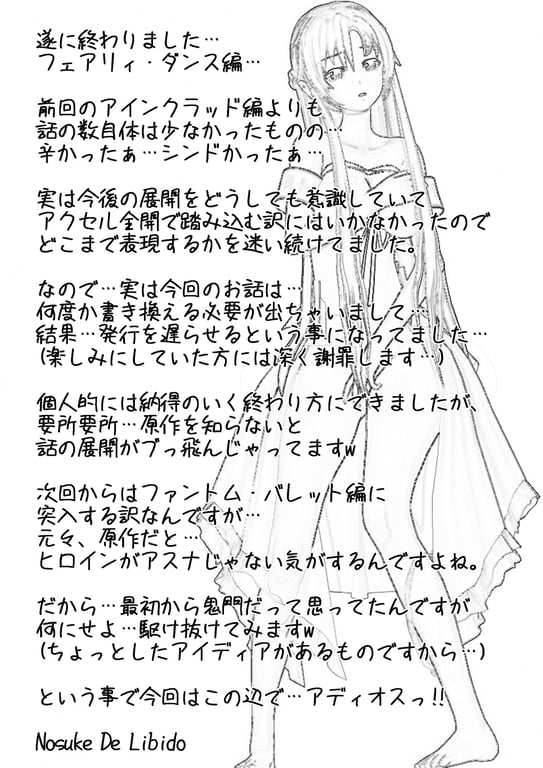 遂に終わりました…
フェアリィ・ダンス編…
前回のアインクラッド編よりも
話の数自体は少なかったものの…
辛かったぁ…シンドかったぁ…
実は今後の展開をどうしても意識していて
アクセル全開で踏み込む訳にはいかなかったので
どこまで表現するかを迷い続けてました。
なので…実は今回のお話は…
何度か書き換える必要が出ちゃいまして…
結果…発行を遅らせるという事になってました…
(楽しみにしていた方には深く謝罪します…)
個人的には納得のいく終わり方にできましたが、
要所要所…原作を知らないと
話の展開がブっ飛んじゃってますw
次回からはファントム・バレット編に
突入する訳なんですが…
元々、原作だと…
ヒロインがアスナじゃない気がするんですよね。
だから…最初から鬼門だって思ってたんですが
何にせよ…駆け抜けてみますw
(ちょっとしたアイディアがあるものですから…)
という事で今回はこの辺で…アディオスっ!!
Nosuke De Libido